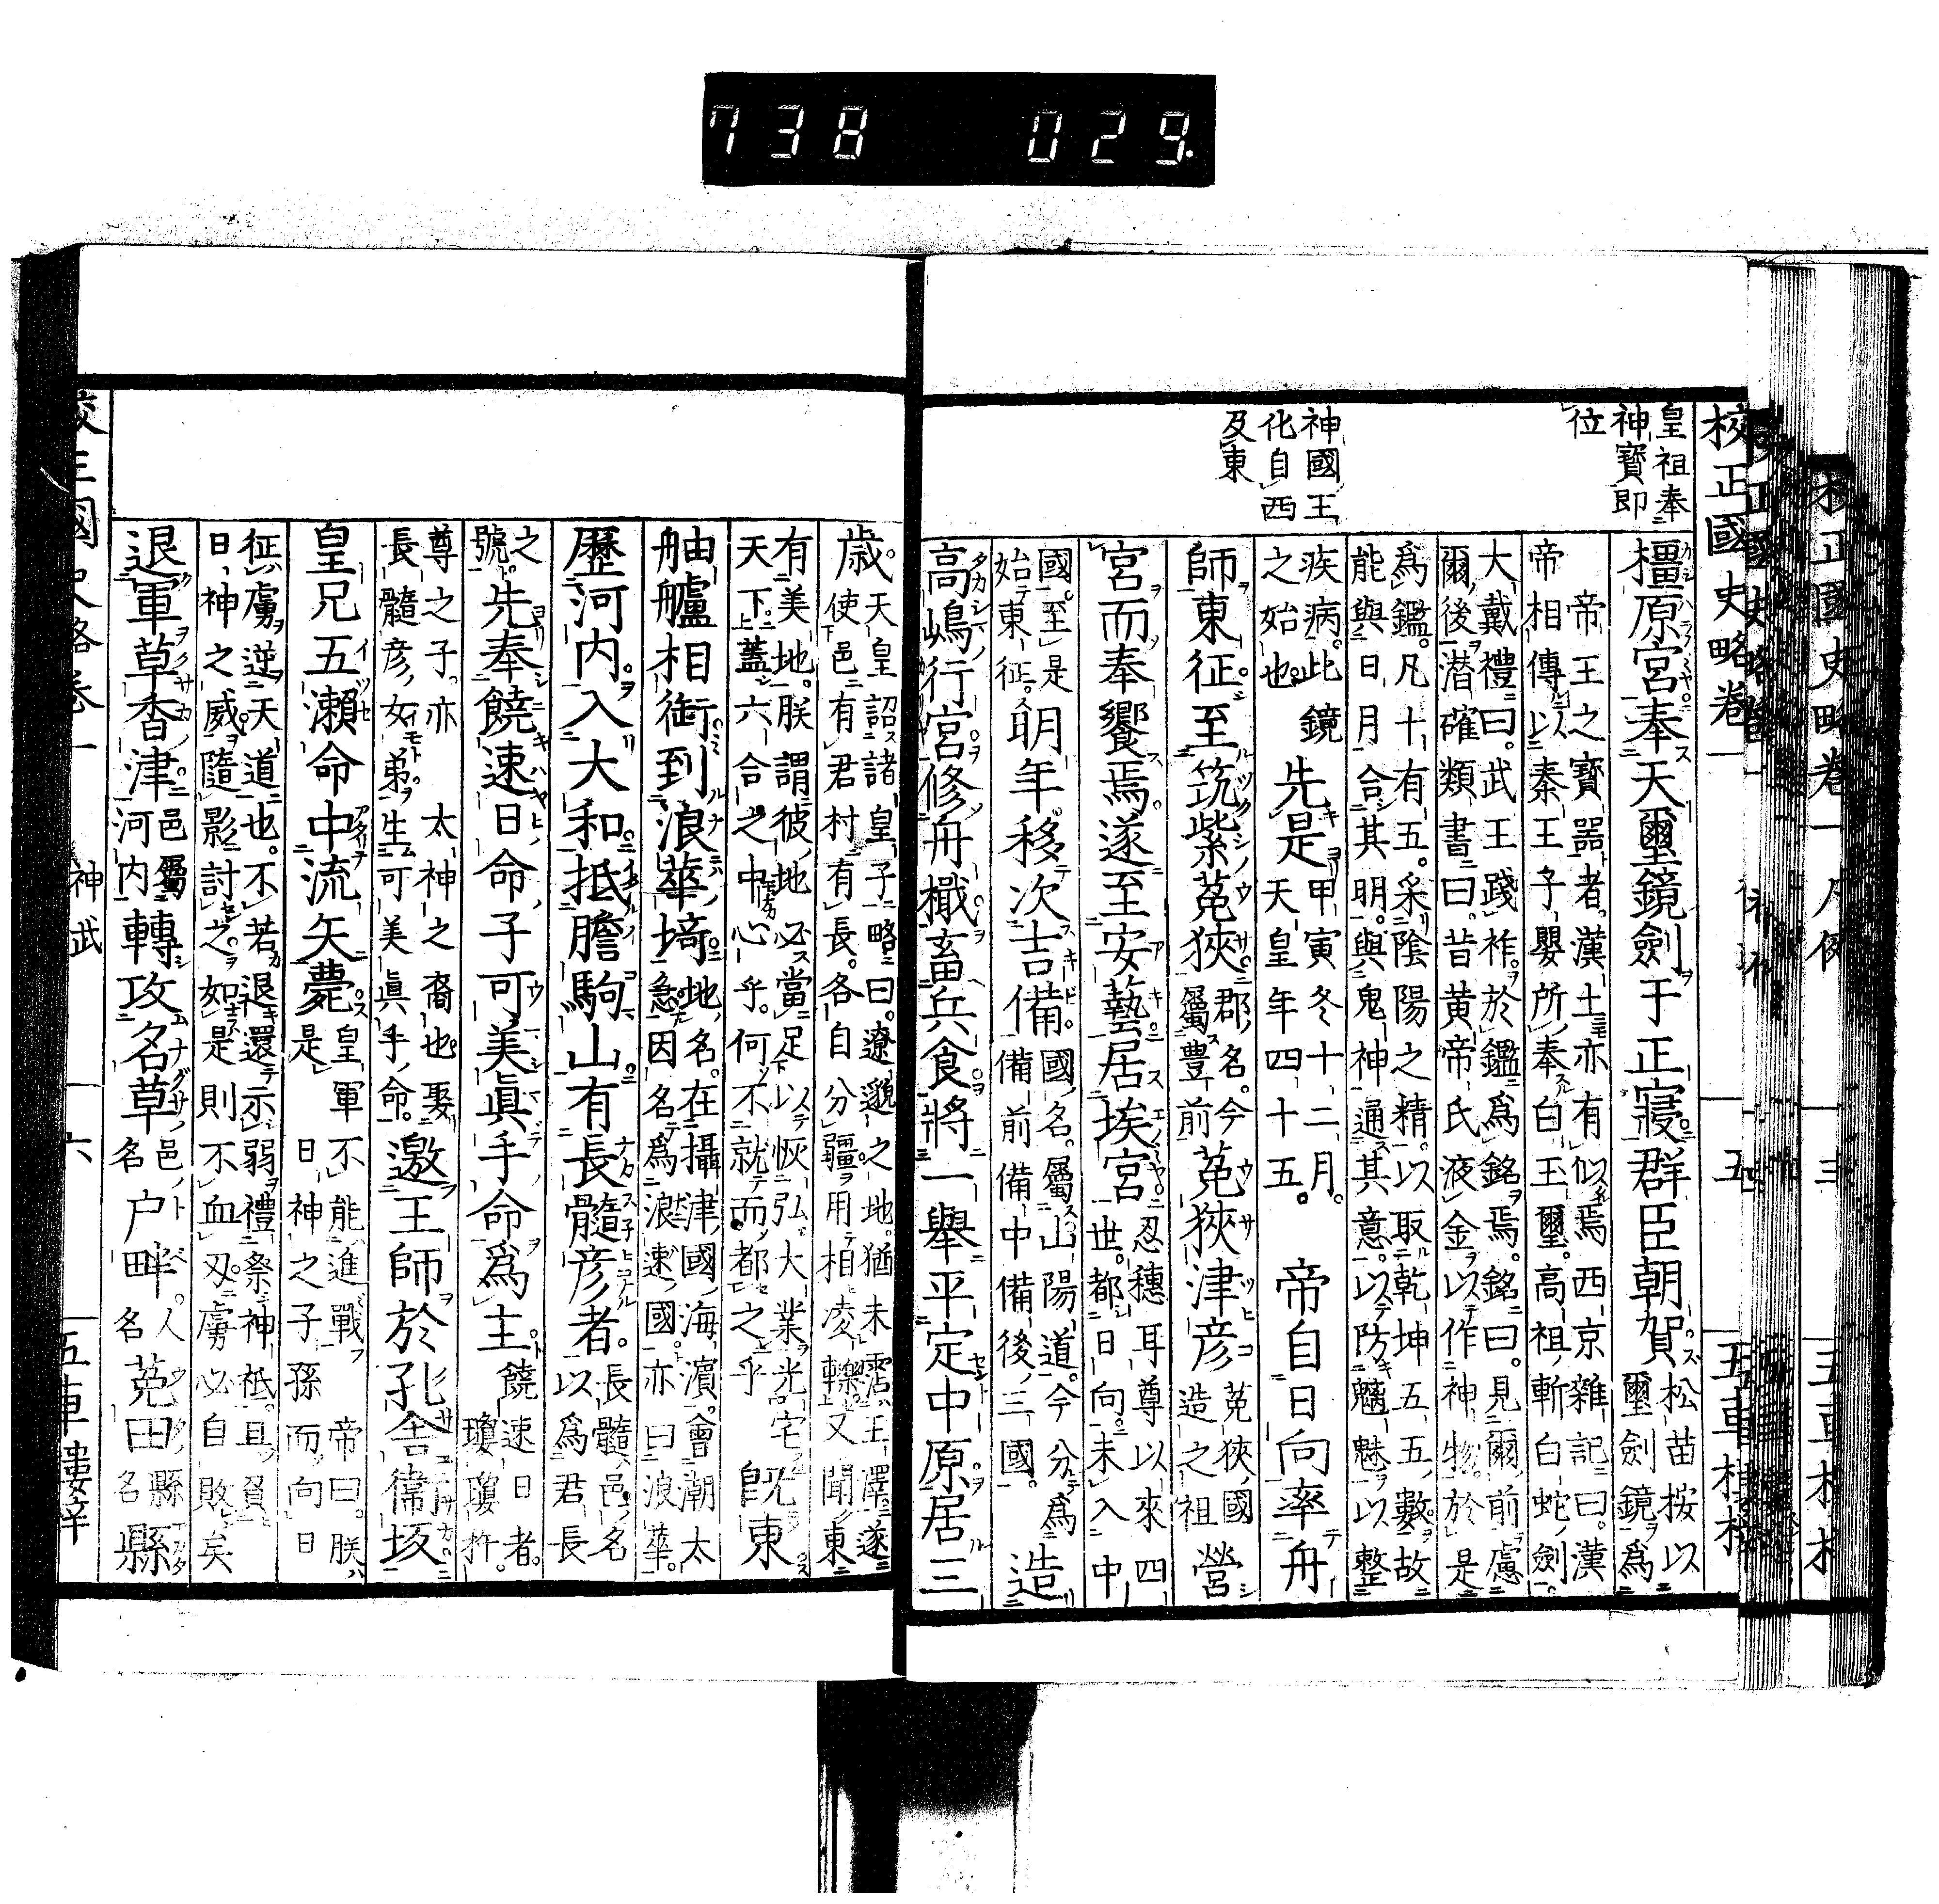 738 029.
校正國史略卷一
五
五車樓梓
皇祖奉
神寶即
位
神國王
化自西
及東
橿原宮奉天璽鏡劍于正寢群臣朝賀 松苗按以
璽劍鏡爲
帝王之寶器者漢土亦有似焉西京雜記曰漢
帝相傳以秦王子嬰所奉白玉璽高祖斬白蛇劍
大戴禮曰武王踐祚於鑑爲銘焉銘曰見爾前慮
爾後潜確類書曰昔黄帝氏液金以作神物於是
爲鑑凡十有五采陰陽之精以取乾坤五五數故
能與日月合其明與鬼神通其意以防魑魅以整
疾病此鏡
之始也 先是 甲寅冬十二月
天皇年四十五 帝自日向率舟
師東征至筑紫莵狹 郡名今
屬豊前 莵狹津彦 莵狹國
造之祖 營
宮而奉饗焉遂至安藝居埃宮 忍穗耳尊以來四
世都日向未入中
國至是
始東征 明年移次吉備 國名屬山陽道今分爲
備前備中備後三國 造
高嶋行宮修舟檝畜兵食將一舉平定中原居三
歳 天皇詔諸皇子略曰遼邈之地猶未霑王澤遂
使邑有君村有長各自分疆用相凌轢又聞東
有美地朕謂彼地必當足以恢弘大業光宅
天下蓋六合之中心乎何不就而都之乎 既東
舳艫相銜到浪華埼 地名在攝津國海濱會潮太
急因名爲浪速國亦曰浪華
歷河内入大和抵膽駒山有長髓彦者 長髓邑名
以爲君長
之
號 先奉饒速日命子可美眞手命爲主 饒速日者
瓊瓊杵
尊之子亦 太神之裔也娶
長髓彦女弟生可美眞手命 邀王師於孔舎衞坂
皇兄五瀬命中流矢薨 皇軍不能進戰 帝曰朕
是日神之子孫而向日
征虜逆天道也不若退還示弱禮祭神祇且負
日神之威隨影討之如是則不血刄虜必自敗矣
退軍草香津 邑屬
河内 轉攻名草 邑
名 戸畔 人
名 莵田 縣
名 縣
神武
六
五車樓梓